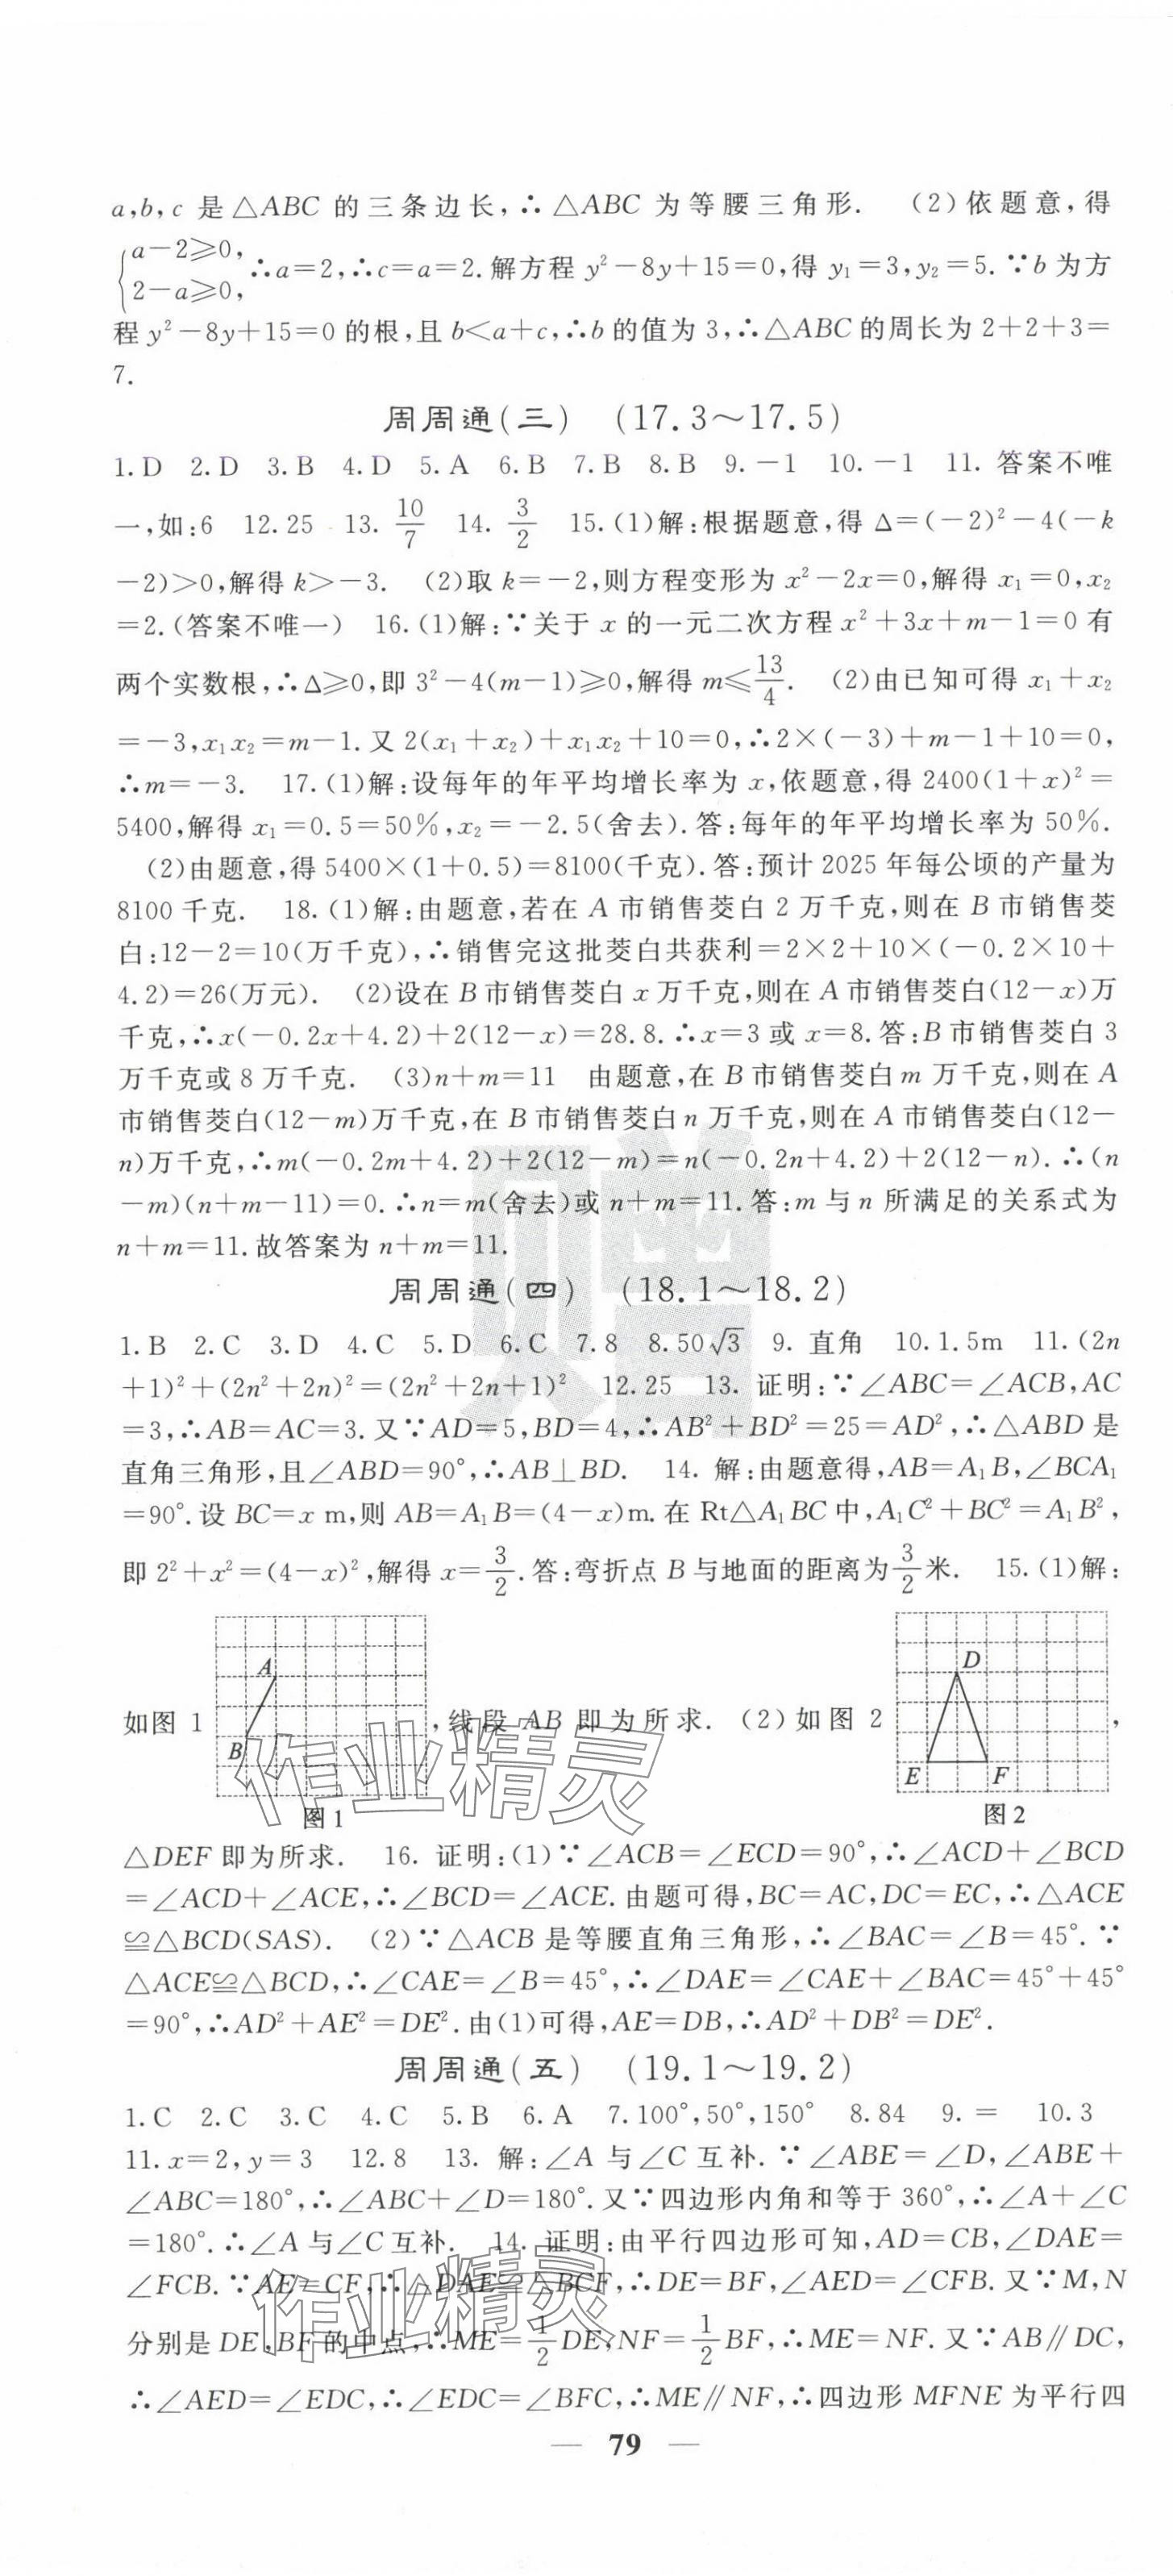 a,b,c 是△ABC 的三条边长,∴△ABC 为等腰三角形. (2)依题意,得
{a-2≥0, 2-a≥0, ∴a=2,∴c=a=2.解方程 y²-8y+15=0,得 y₁=3,y₂=5.∵b 为方
程 y²-8y+15=0 的根,且 b<a+c,∴b 的值为 3,∴△ABC 的周长为 2+2+3=
7.
周周通(三) (17.3~17.5)
1.D 2.D 3.B 4.D 5.A 6.B 7.B 8.B 9.-1 10.-1 11. 答案不唯
一,如:6 12.25 13. 10/7 14. 3/2 15.(1)解:根据题意,得 Δ=(-2)²-4(-k
-2)>0,解得 k>-3. (2)取 k=-2,则方程变形为 x²-2x=0,解得 x₁=0,x₂
=2.(答案不唯一) 16.(1)解:∵关于 x 的一元二次方程 x²+3x+m-1=0 有
两个实数根,∴Δ≥0,即 3²-4(m-1)≥0,解得 m≤13/4. (2)由已知可得 x₁+x₂
=-3,x₁x₂=m-1.又 2(x₁+x₂)+x₁x₂+10=0,∴2×(-3)+m-1+10=0,
∴m=-3. 17.(1)解:设每年的年平均增长率为 x,依题意,得 2400(1+x)²=
5400,解得 x₁=0.5=50%,x₂=-2.5(舍去).答:每年的年平均增长率为 50%.
(2)由题意,得 5400×(1+0.5)=8100(千克).答:预计 2025 年每公顷的产量为
8100 千克. 18.(1)解:由题意,若在 A 市销售茭白 2 万千克,则在 B 市销售茭
白:12-2=10(万千克),∴销售完这批茭白共获利=2×2+10×(-0.2×10+
4.2)=26(万元). (2)设在 B 市销售茭白 x 万千克,则在 A 市销售茭白(12-x)万
千克,∴x(-0.2x+4.2)+2(12-x)=28.8.∴x=3 或 x=8.答:B 市销售茭白 3
万千克或 8 万千克. (3)n+m=11 由题意,在 B 市销售茭白 m 万千克,则在 A
市销售茭白(12-m)万千克,在 B 市销售茭白 n 万千克,则在 A 市销售茭白(12-
n)万千克,∴m(-0.2m+4.2)+2(12-m)=n(-0.2n+4.2)+2(12-n).∴(n
-m)(n+m-11)=0.∴n=m(舍去)或 n+m=11.答:m 与 n 所满足的关系式为
n+m=11.故答案为 n+m=11.
赠
周周通(四) (18.1~18.2)
1.B 2.C 3.D 4.C 5.D 6.C 7.8 8.50√3 9. 直角 10.1.5m 11.(2n
+1)²+(2n²+2n)²=(2n²+2n+1)² 12.25 13. 证明:∵∠ABC=∠ACB,AC
=3,∴AB=AC=3.又∵AD=5,BD=4,∴AB²+BD²=25=AD²,∴△ABD 是
直角三角形,且∠ABD=90°,∴AB⊥BD. 14. 解:由题意得,AB=A₁B,∠BCA₁
=90°.设 BC=x m,则 AB=A₁B=(4-x)m.在 Rt△A₁BC 中,A₁C²+BC²=A₁B²,
即 2²+x²=(4-x)²,解得 x=3/2.答:弯折点 B 与地面的距离为3/2米. 15.(1)解:
A
D
如图 1 ,线段 AB 即为所求. (2)如图 2 ,
B
E F
图 1
图 2
作业精灵
△DEF 即为所求. 16. 证明:(1)∵∠ACB=∠ECD=90°,∴∠ACD+∠BCD
=∠ACD+∠ACE,∴∠BCD=∠ACE.由题可得,BC=AC,DC=EC,∴△ACE
≌△BCD(SAS). (2)∵△ACB 是等腰直角三角形,∴∠BAC=∠B=45°.∵
△ACE≌△BCD,∴∠CAE=∠B=45°,∴∠DAE=∠CAE+∠BAC=45°+45°
=90°,∴AD²+AE²=DE².由(1)可得,AE=DB,∴AD²+DB²=DE².
周周通(五) (19.1~19.2)
1.C 2.C 3.C 4.C 5.B 6.A 7.100°,50°,150° 8.84 9. = 10.3
11.x=2,y=3 12.8 13. 解:∠A 与∠C 互补.∵∠ABE=∠D,∠ABE+
∠ABC=180°,∴∠ABC+∠D=180°.又∵四边形内角和等于 360°,∴∠A+∠C
=180°.∴∠A 与∠C 互补. 14. 证明:由平行四边形可知,AD=CB,∠DAE=
∠FCB.∵AE=CF,∴△DAE≌△BCF,∴DE=BF,∠AED=∠CFB.又∵M,N
分别是 DE,BF 的中点,∴ME=1/2DE,NF=1/2BF,∴ME=NF.又∵AB∥DC,
∴∠AED=∠EDC,∴∠EDC=∠BFC,∴ME∥NF,∴四边形 MFNE 为平行四
作业精灵
— 79 —